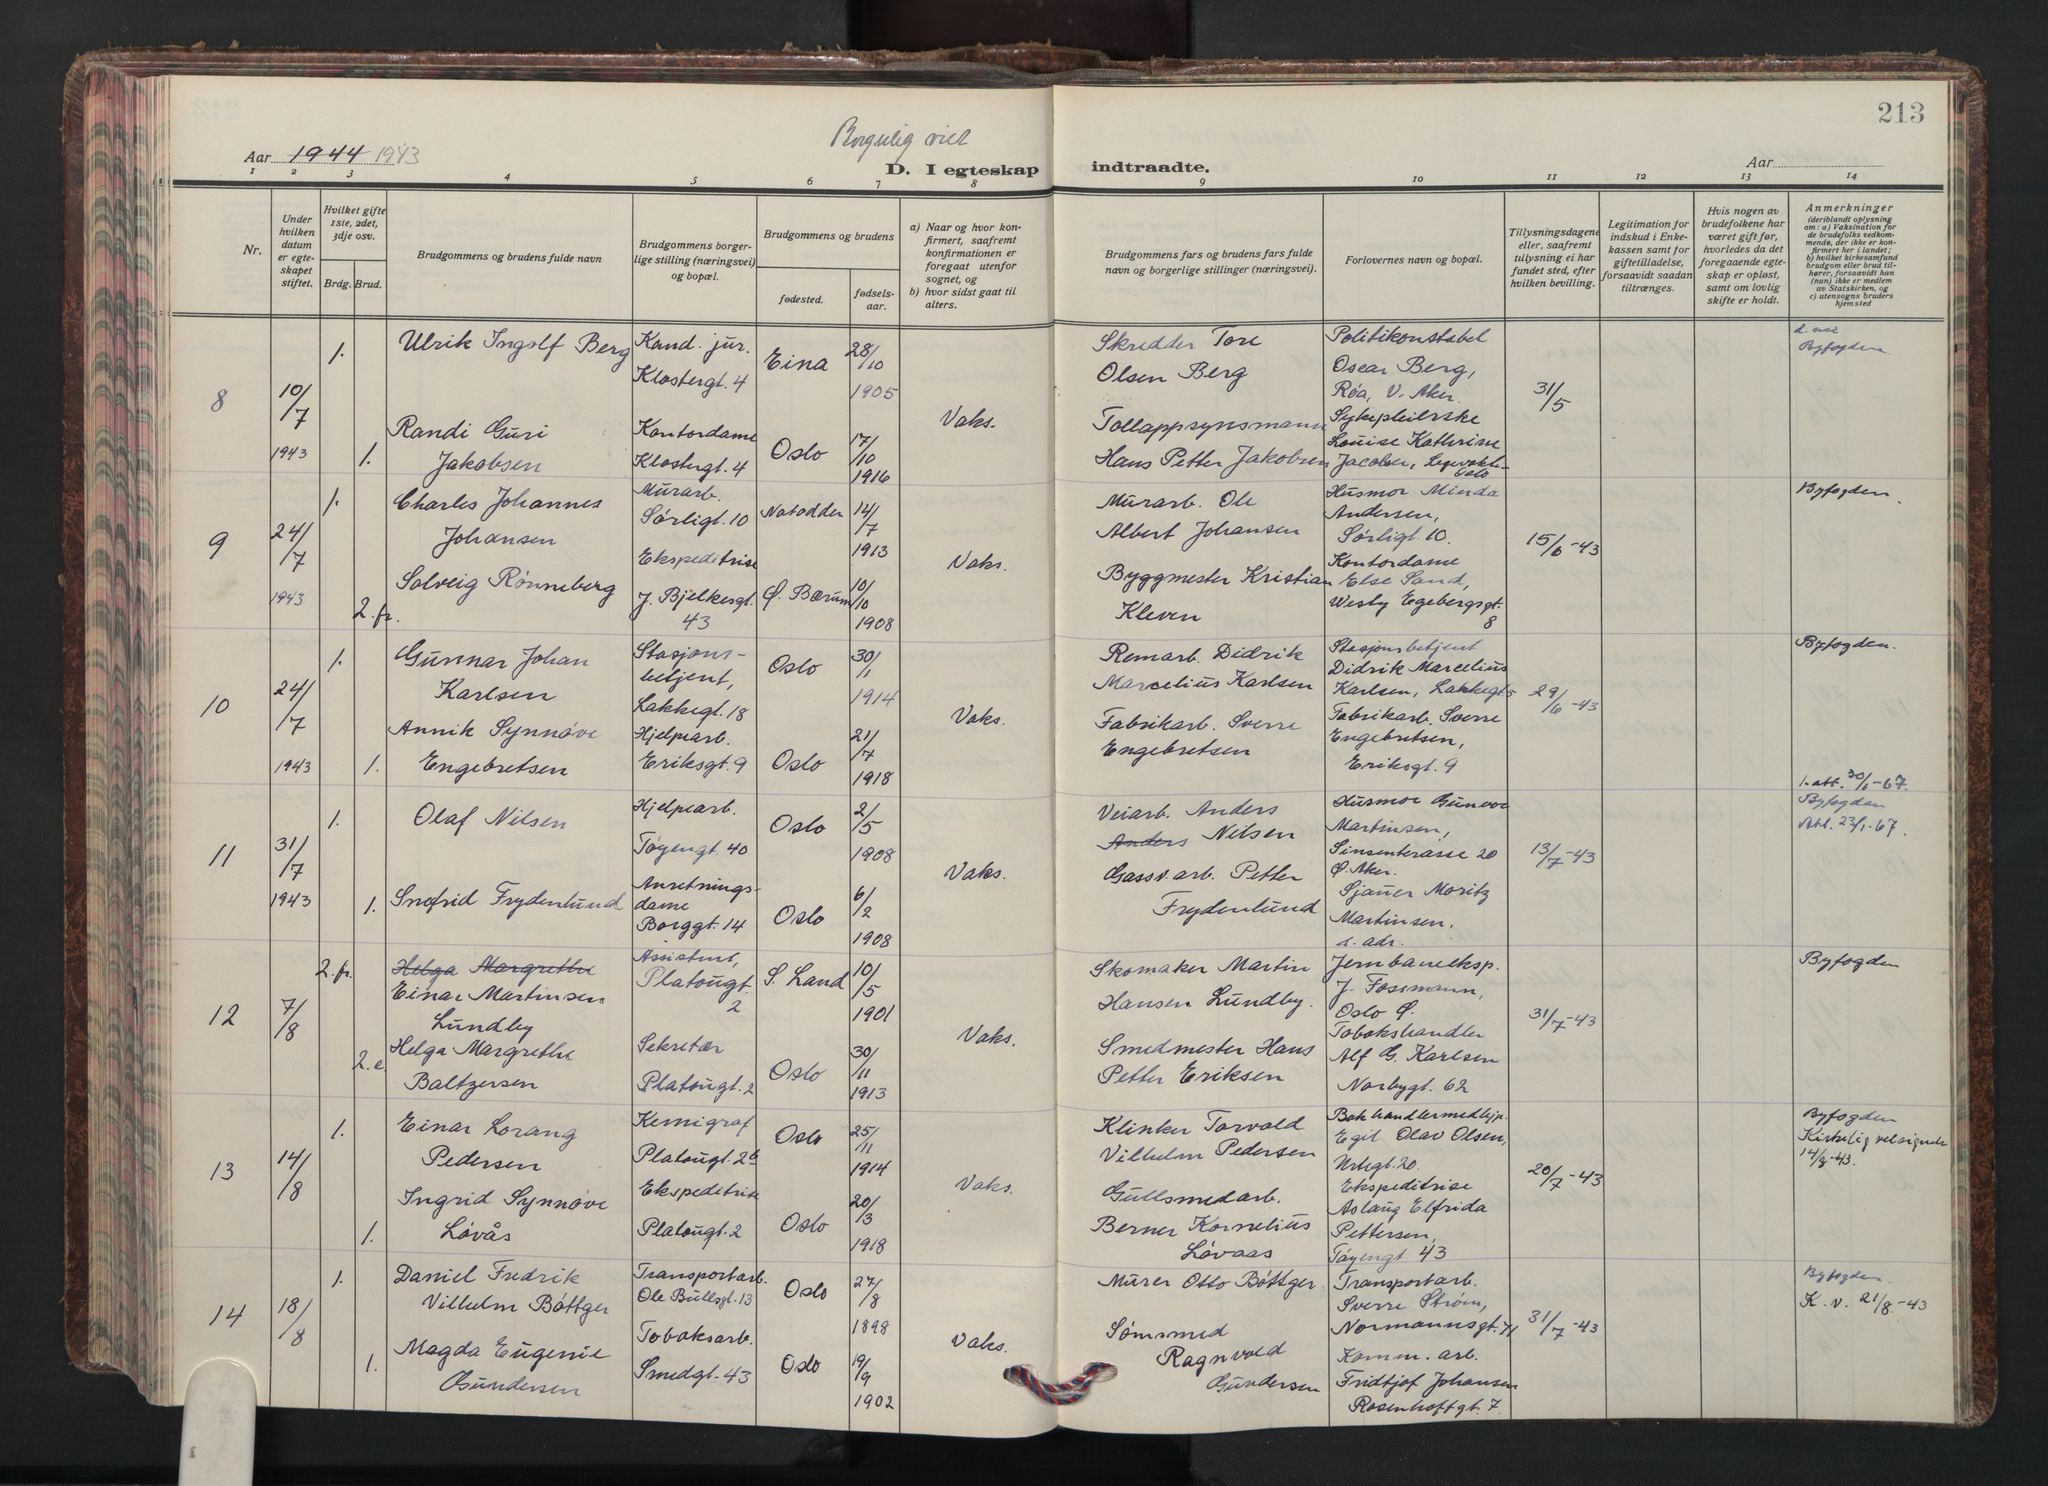 213
Borgerlig viet
Aar 1944 1943
D. I egteskap indtraadte.
Aar
1 2 3 4 5 6 7 8 9 10 11 12 13 14
Nr.
Under hvilken datum er egteskapet stiftet.
Hvilket gifte 1ste, 2det, 3dje osv.
Brdg. Brud.
Brudgommens og brudens fulde navn
Brudgommens borgerlige stilling (næringsvei) og bopæl.
Brudgommens og brudens
fødested.
fødselsaar.
a) Naar og hvor konfirmert, saafremt konfirmationen er foregaat utenfor sognet, og
b) hvor sidst gaat til alters.
Brudgommens fars og brudens fars fulde navn og borgerlige stillinger (næringsvei).
Forlovernes navn og bopæl.
Tillysningsdagene eller, saafremt tillysning ei har fundet sted, efter hvilken bevilling.
Legitimation for indskud i Enkekassen samt for giftetilladelse, forsaavidt saadan tiltrænges.
Hvis nogen av brudefolkene har været gift før, hvorledes da det foregaaende egteskap er opløst, samt om lovlig skifte er holdt.
Anmerkninger
(deriblandt oplysning om: a) Vaksination for de brudefolks vedkommende, der ikke er konfirmert her i landet; b) hvilket kirkesamfund brudgom eller brud tilhører, forsaavidt han (hun) ikke er medlem av Statskirken, og c) utensogns bruders hjemsted
8
10/7
1943
1.
Ulrik Ingolf Berg
Kand. jur.
Klostergt. 4
Eina
28/10
1905
Skredder Tore
Olsen Berg
Politikonstabel
Oscar Berg,
Røa, V. Aker.
31/5
Byfogden
1.
Randi Guri
Jakobsen
Kontordame
Klostergt. 4
Oslo
17/10
1916
Vaks.
Tollappsynsmann
Hans Petter Jakobsen
Sykepleierske
Louise Kathrine
Jacobsen, Legevakten
Oslo
9
24/7
1943
1.
Charles Johannes
Johansen
Murarb.
Sørligt. 10
Notodden
14/7
1913
Murarb. Ole
Albert Johansen
Husmor Minda
Andersen,
Sørligt 10.
15/6-43
Byfogden.
2. fr.
Solveig Rønneberg
Ekspeditrise
J. Bjelkesgt.
43
Ø. Bærum
10/10
1908
Vaks.
Byggmester Kristian
Kleven
Kontordame
Else Sand,
Westy Egebergsgt.
8
10
24/7
1943
1.
Gunnar Johan
Karlsen
Stasjons-
betjent,
Lakkegt. 18
Oslo
30/1
1914
Remarb. Didrik
Marcelius Karlsen
Stasjonsbetjent
Didrik Marcelius
Karlsen, Lakkegt 5
29/6-43
Byfogden.
1.
Annik Synnøve
Engebretsen
Hjelpearb.
Eriksgt. 9
Oslo
21/7
1918
Vaks.
Fabrikarb. Sverre
Engebretsen
Fabrikarb. Sverre
Engebretsen,
Eriksgt. 9
11
31/7
1943
1.
Olaf Nilsen
Hjelpearb.
Tøyengt. 40
Oslo
2/5
1908
Veiarb. Anders
Anders Nilsen
Husmor Gunvor
Martinsen,
Sinsenterasse 20
Ø. Aker.
13/7-43
1. att. 30/1-67.
Byfogden
Att. 23/1-67.
1.
Snefrid Frydenlund
Anretnings-
dame
Borggt. 14
Oslo
6/2
1908
Vaks.
Gassv.arb. Petter
Frydenlund
Sjauer Moritz
Martinsen,
s. adr.
12
7/8
2. fr.
Helga Margrethe
Einar Martinsen
Lundby
Assistent,
Platougt.
2
S. Land
10/5
1901
Skomaker Martin
Hansen Lundby.
Jernbaneeksp.
J. Fossmann,
Oslo Ø.
31/7-43
Byfogden
2. e
Helga Margrethe
Baltzersen
Sekretær
Platougt. 2
Oslo
30/11
1913
Vaks.
Smedmester Hans
Petter Eriksen
Tobakshandler
Alf G. Karlsen
Norbygt. 62
13
14/8
1.
Einar Lorang
Pedersen
Kemigraf
Platougt. 2b
Oslo
25/11
1914
Klinker Torvald
Vilhelm Pedersen
Bokhandlermedhjp.
Egil Olav Olsen,
Urtegt. 20.
20/7-43
Byfogden
Kirkelig velsignede
14/8-43.
1.
Ingrid Synnøve
Løvås
Ekspeditrise
Platougt. 2
Oslo
20/3
1918
Vaks.
Gullsmedarb.
Berner Kornelius
Løvaas
Ekspeditrise
Aslaug Elfrida
Pettersen,
Tøyengt 43
14
18/8
1.
Daniel Fredrik
Vilhelm Bøttger
Transportarb.
Ole Bullsgt. 13
Oslo
27/8
1898
Murer Otto Bøttger
Transportarb.
Sverre Strøm,
Normannsgt. 71
31/7-43
Byfogden.
K. v. 21/8-43
1.
Magda Eugenie
Gundersen
Tobaksarb.
Smedgt. 43
Oslo
19/9
1902
Vaks.
Sømsmed
Ragnvald
Gundersen
Komm. arb.
Fridtjof Johansen
Rosenhoffgt. 7.